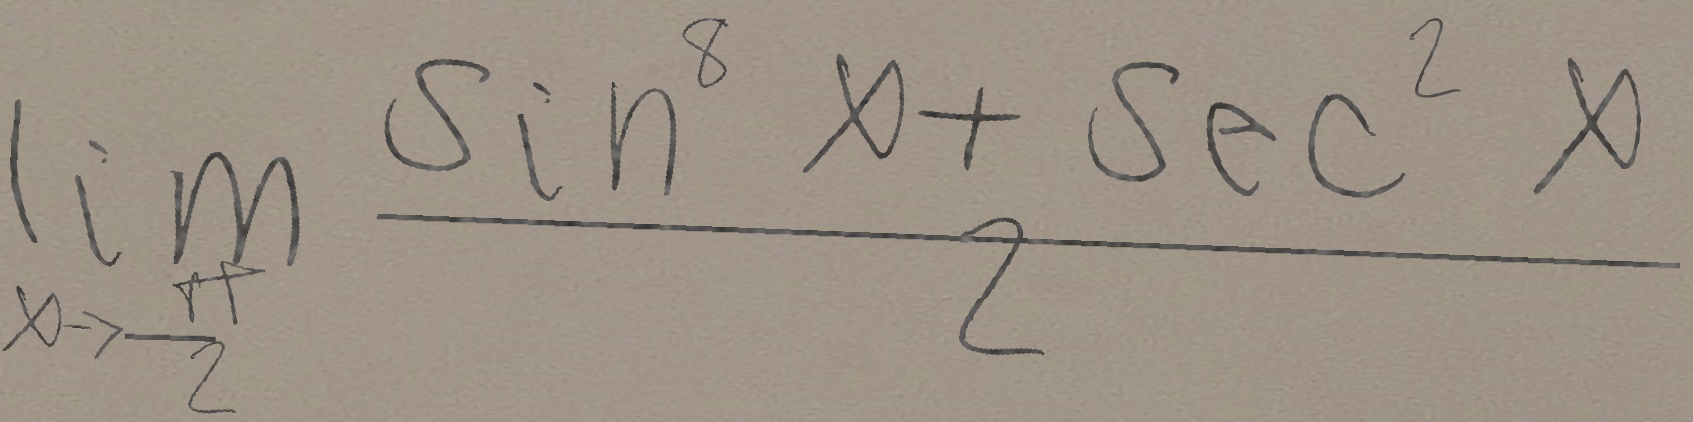 lim x→π/2 (sin⁸ x + sec² x)/2